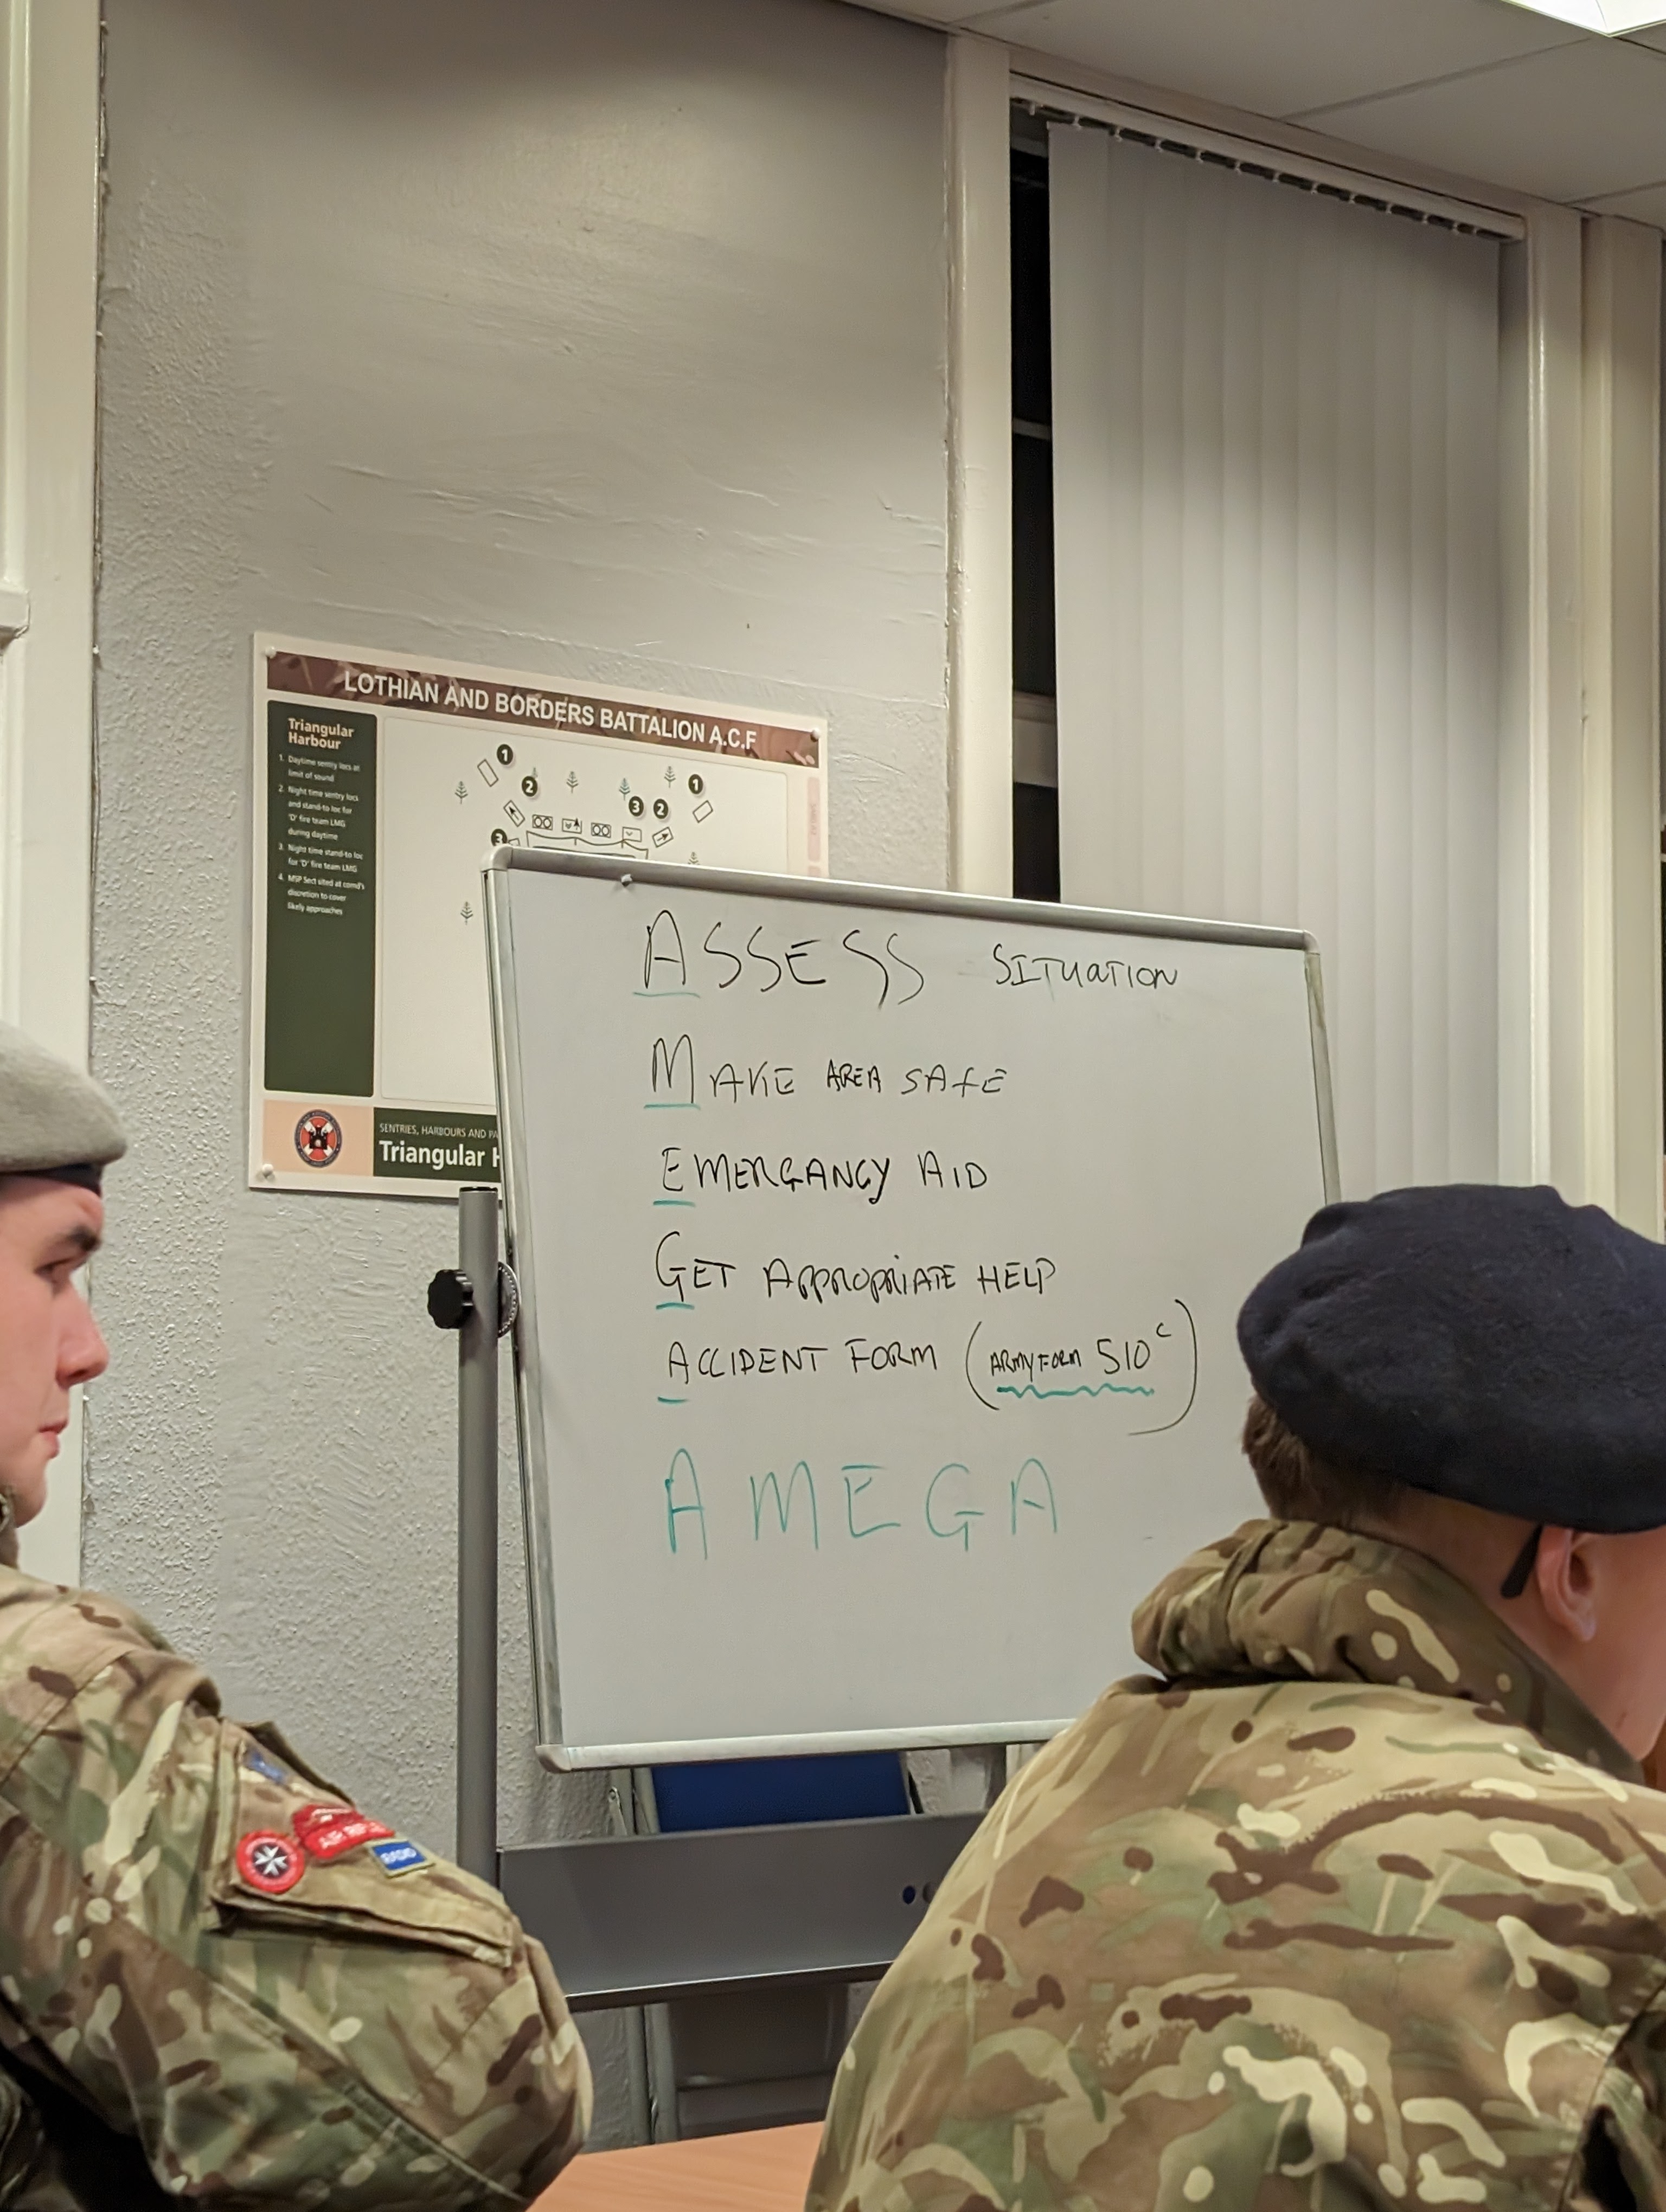 LOTHIAN AND BORDERS BATTALION A.C.F
Triangular
Harbour
1. Daytime sentry locs at
limit of sound
2. Night time sentry locs
and stand-to loc for
'D' fire team LMG
during daytime
3. Night time stand-to loc
for 'D' fire team LMG
4. MSP Sect sited at comd's
discretion to cover
likely approaches
1
2
1
3 2
3
SENTRIES, HARBOURS AND
Triangular
ASSESS SITUATION
MAKE AREA SAFE
EMERGANCY AID
GET APPROPRIATE HELP
ACCIDENT FORM (ARMY FORM 510 C)
AMEGA